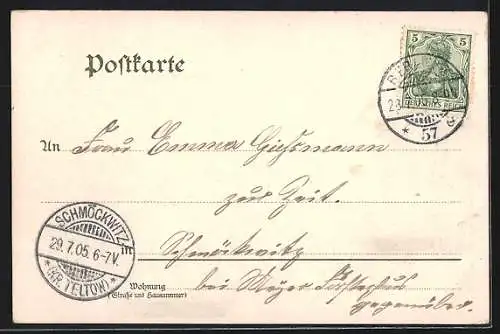 Postkarte
5 5
BER
DEUTSCHES REICH
* 57 e
An Frau Emma Giessmann
zur Zeit.
Schmöckwitz
SCHMÖCKWITZ
29.7.05. 6-7V.
*(KR. TELTOW)*
Wohnung
(Straße und Hausnummer)
bei Meyer Forsthaus
gegenüber.